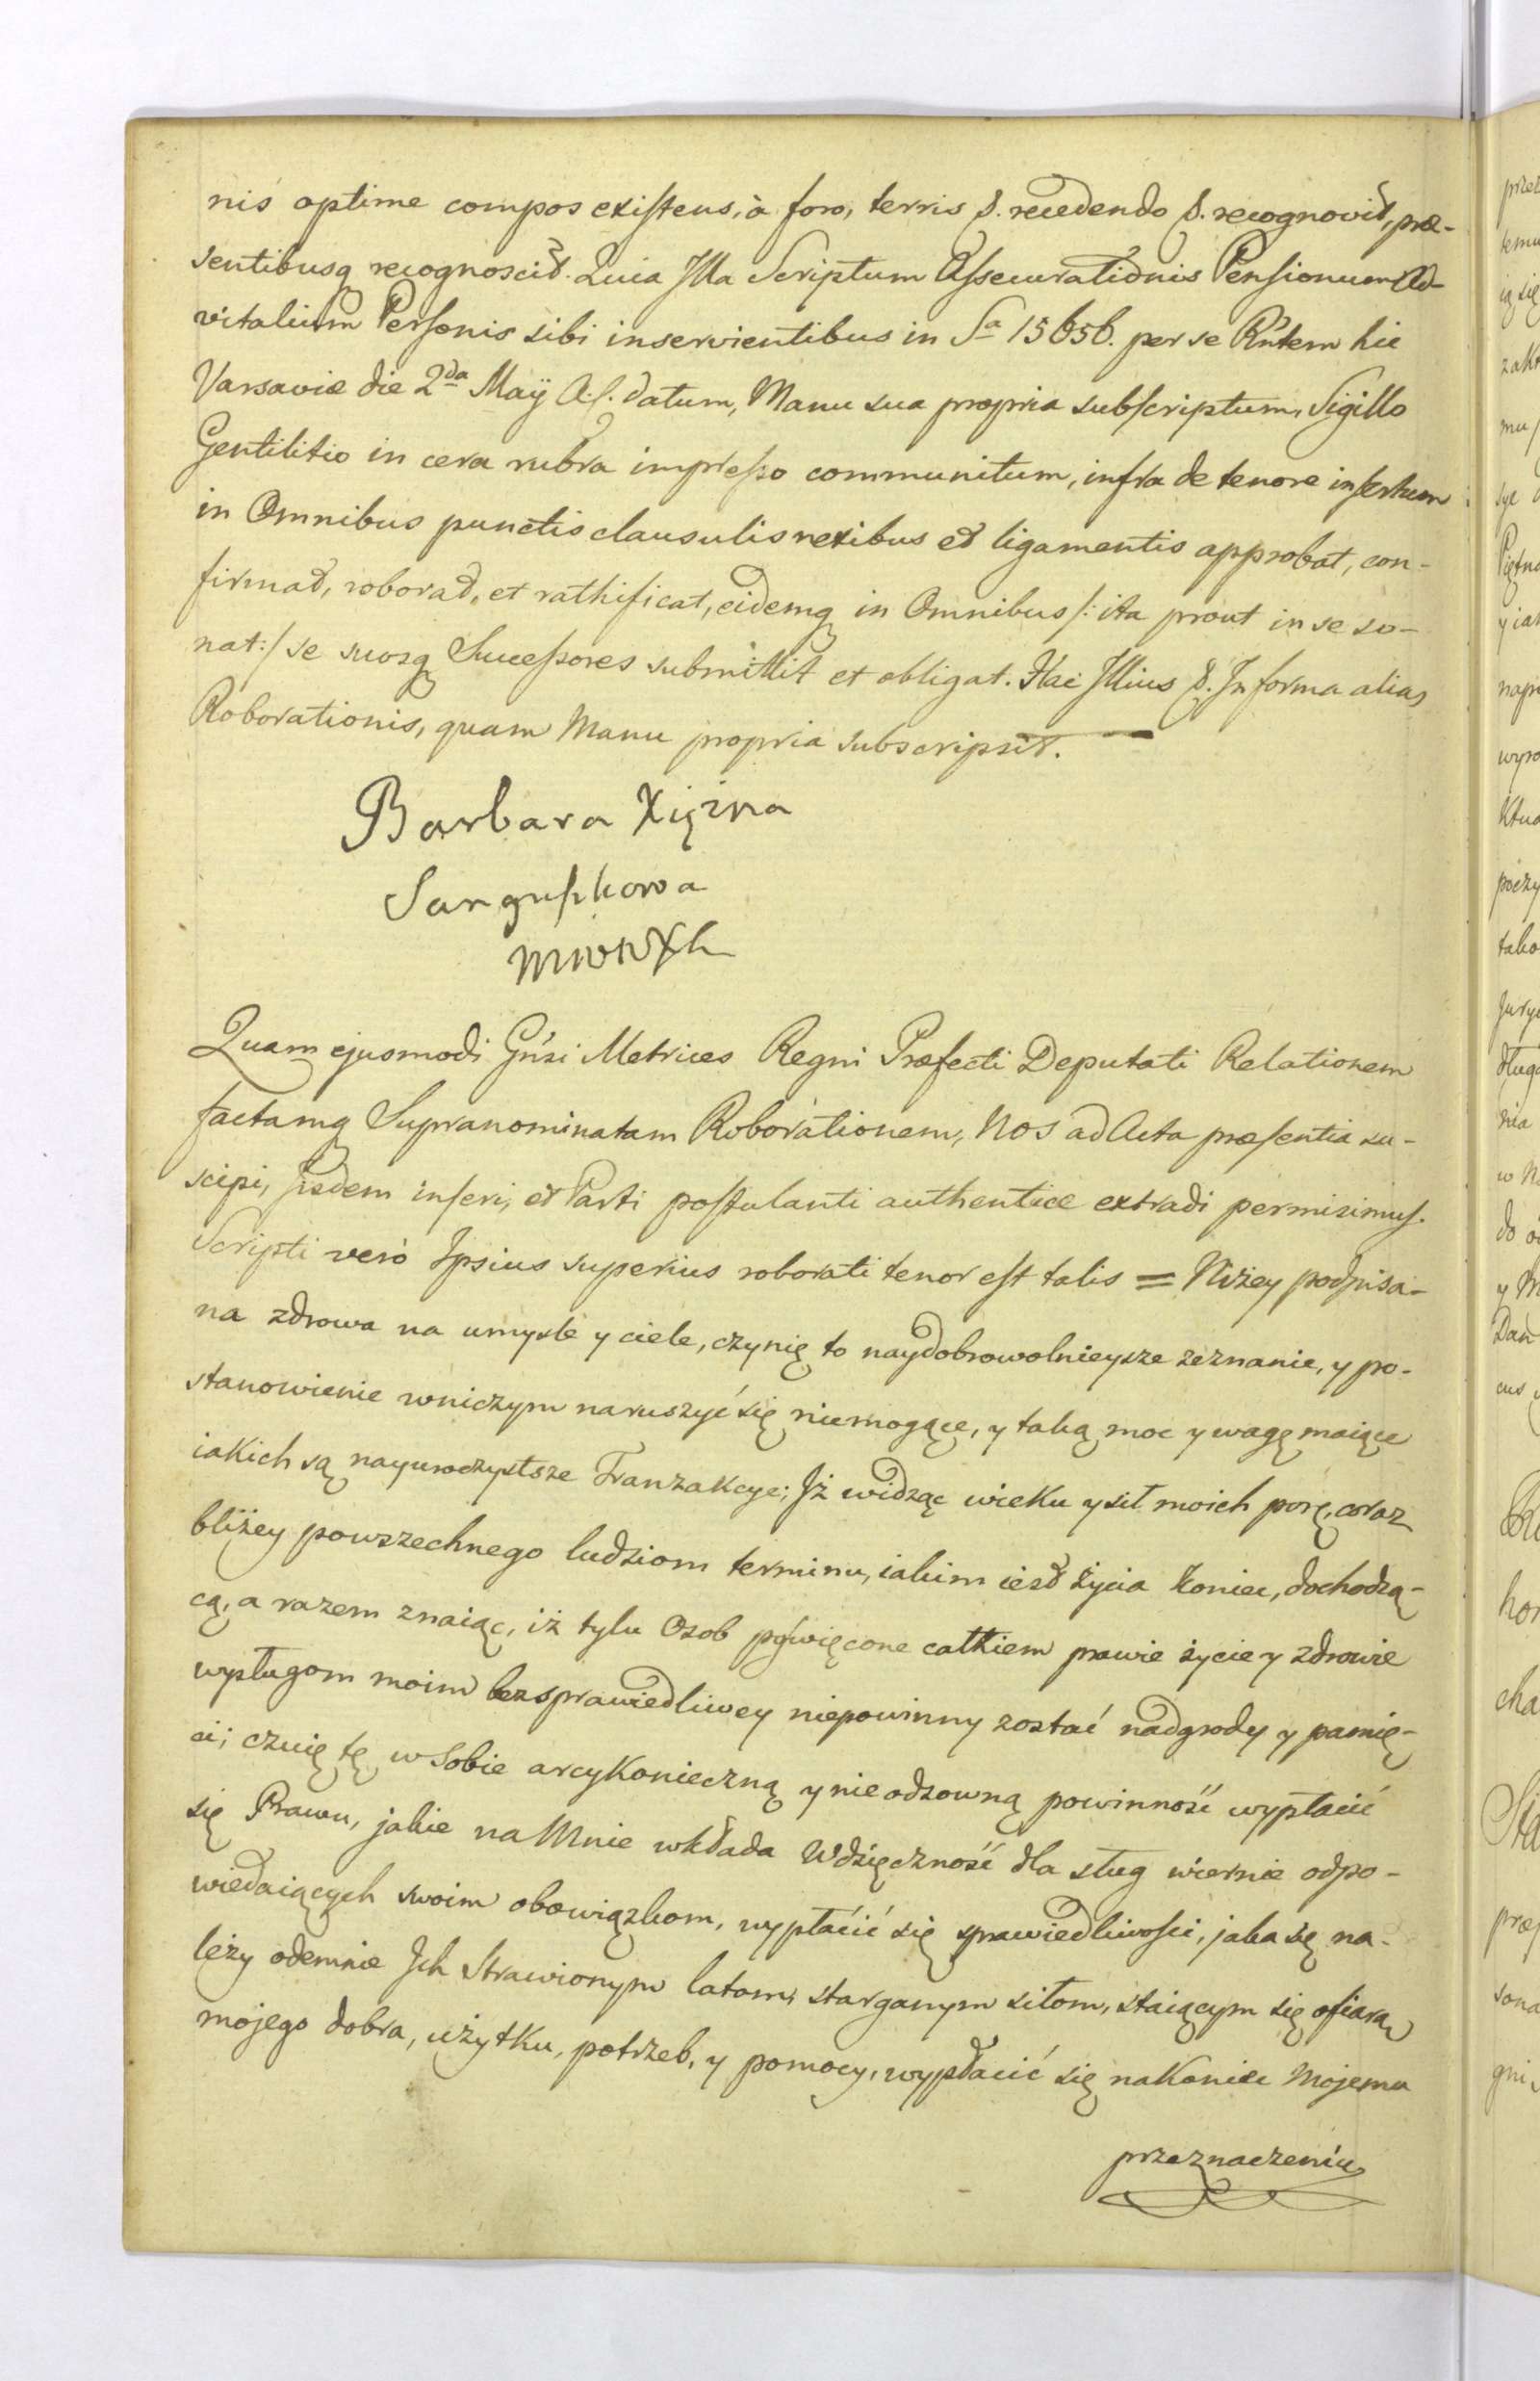 nis optime compos existens, à foro, terris &. recedendo &. recognovit, præ-
sentibusq recognoscit. Quia Illa Scriptum Assecurationis Pensionum Ad-
vitalium Personis sibi inservientibus in Sa 15656. per se Rntem hic
Varsaviæ die 2da Maÿ A. f. datum, Manu sua propria subscriptum, Sigillo
Gentilitio in cera rubra impresso communitum, infra de tenore insertum
in Omnibus punctis clausulis nexibus et ligamentis approbat, con-
firmat, roborat, et rathificat, eidemq in Omnibus /: ita prout in se so-
nat :/ se suosq Successores submittit et obligat. Hac Illius &. In forma alias
Roborationis, quam Manu propria subscripsit. —
Barbara Xiężna
Sanguszkowa
MWWXL
Quam ejusmodi Gńsi Metrices Regni Præfecti Deputati Relationem
factamq Supranominatam Roborationem, Nos ad Acta præsentia su-
scipi, jisdem inseri, et Parti postulanti authentice extradi permisimus.
Scripti verò Ipsius superius roborati tenor est talis = Niżey podpisa-
na zdrowa na umyśle y ciele, czynię to naydobrowolnieysze zeznanie, y po-
stanowienie wniczym naruszyć się niemogące, y taką moc y wagę maiące
iakich są nayuroczystsze Tranzakcye; Iż widząc wieku y sił moich porę, coraz
bliżey powszechnego ludziom terminu, iakim iest życia koniec, dochodzą-
cą, a razem znaiąc, iż tylu Osob poświęcone całkiem prawie życie y zdrowie
wysługom moim bez sprawiedliwey niepowinny zostać nadgrody y pamię-
ci; czuię tę w Sobie arcykonieczną y nieodzowną powinność wypłacić
się Prawu, jakie na Mnie wkłada Wdzięczność dla sług wiernie odpo-
wiedaiących swoim obowiązkom, wypłacić się sprawiedliwości, jaka się na-
leży odemnie Ich Strawionym latom, starganym siłom, staiącym się ofiarą
mojego dobra, użytku, potrzeb, y pomocy, wypłacić się nakoniec Mojemu
przeznaczeniu